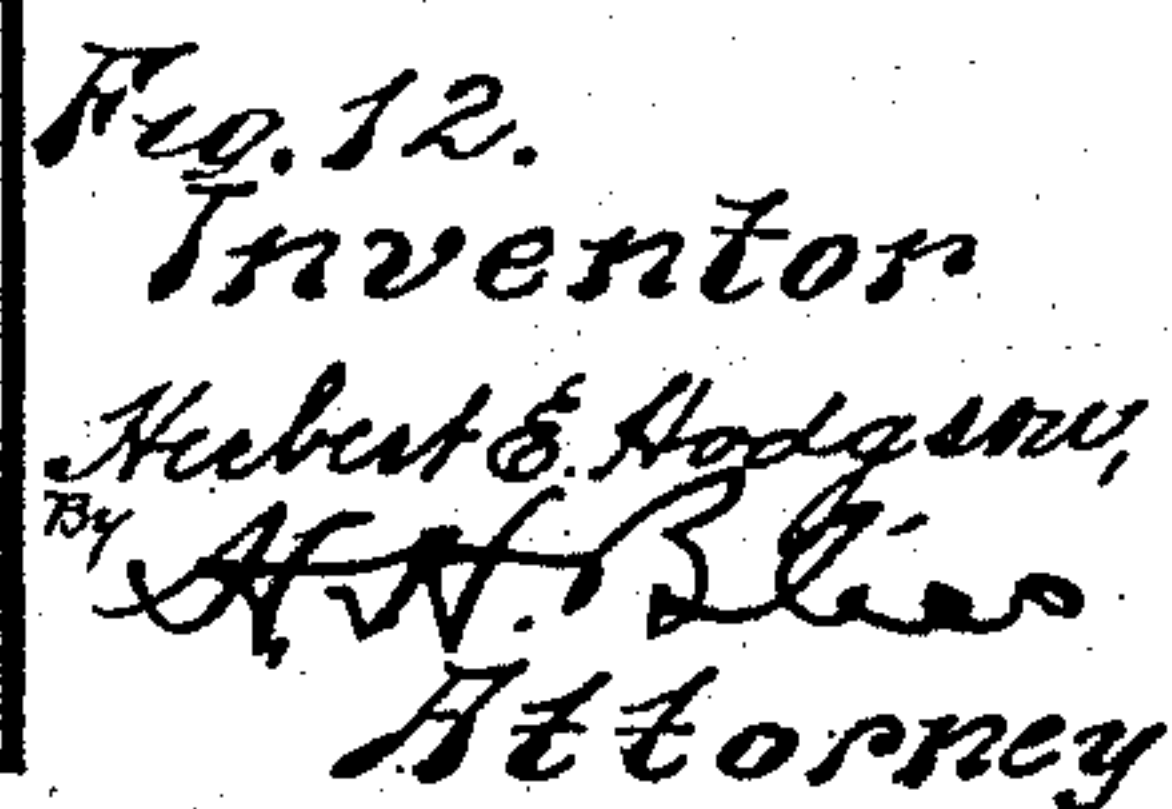 Fig. 12.
Inventor
Herbert E. Hodgson,
By H. H. Bliss
Attorney